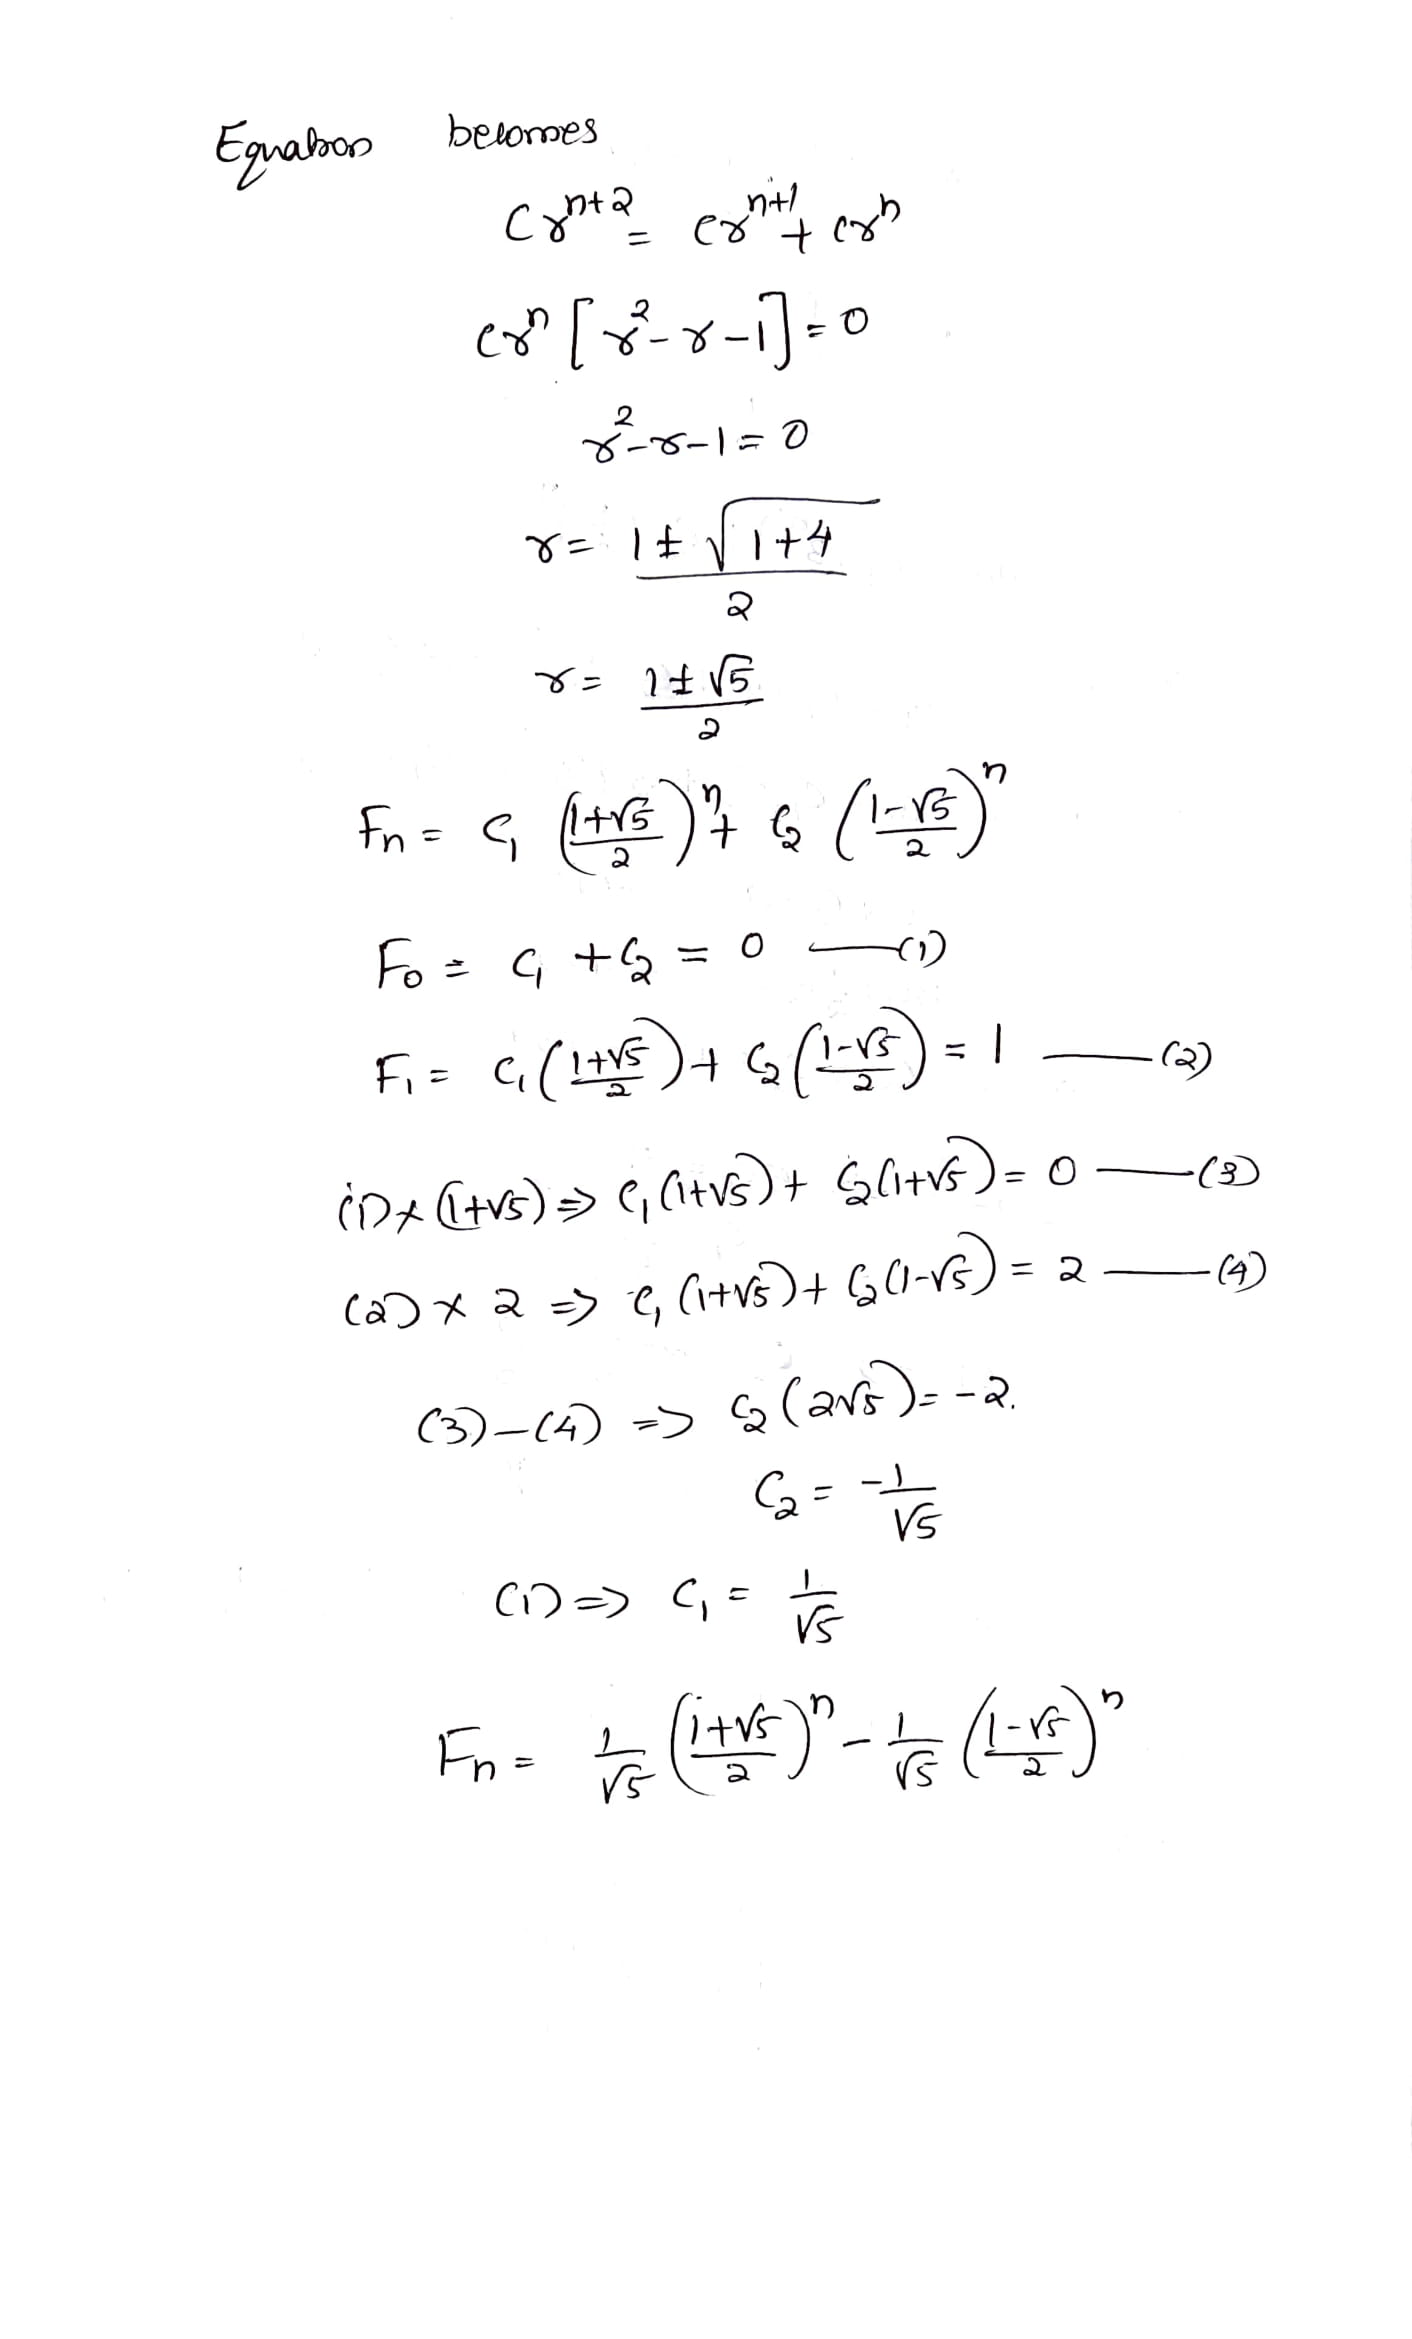 Equation becomes
Cr^{n+2} = Cr^{n+1} + Cr^n
Cr^n [r^2 - r - 1] = 0
r^2 - r - 1 = 0
r = \frac{1 ± \sqrt{1+4}}{2}
r = \frac{1 ± \sqrt{5}}{2}
F_n = C_1 (\frac{1+\sqrt{5}}{2})^n + C_2 (\frac{1-\sqrt{5}}{2})^n
F_0 = C_1 + C_2 = 0 — (1)
F_1 = C_1 (\frac{1+\sqrt{5}}{2}) + C_2 (\frac{1-\sqrt{5}}{2}) = 1 — (2)
(1) × (1+√5) ⇒ C_1 (1+√5) + C_2 (1+√5) = 0 — (3)
(2) × 2 ⇒ C_1 (1+√5) + C_2 (1-√5) = 2 — (4)
(3) – (4) ⇒ C_2 (2√5) = -2.
C_2 = \frac{-1}{\sqrt{5}}
(1) ⇒ C_1 = \frac{1}{\sqrt{5}}
F_n = \frac{1}{\sqrt{5}} (\frac{1+\sqrt{5}}{2})^n - \frac{1}{\sqrt{5}} (\frac{1-\sqrt{5}}{2})^n